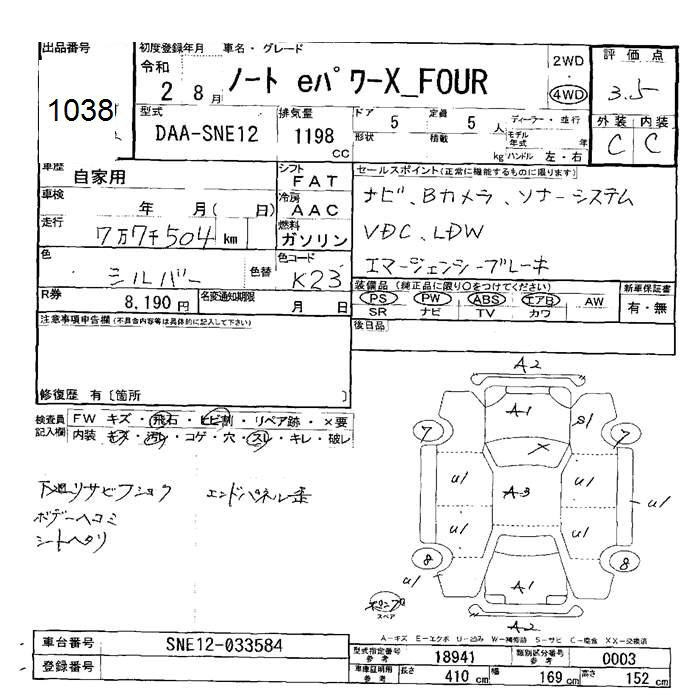 出品番号 初度登録年月 車名・グレード 2WD 評価点
1038 令和 2 8月 ノート eパワーX_FOUR 4WD 3.5
型式 排気量 ドア 5 定員 5 人 ディーラー・並行 外装 内装
DAA-SNE12 1198 cc 形状 積載 kg モデル年式 年 ハンドル 左・右 C C
車歴 自家用 シフト FAT セールスポイント(正常に機能するものに限ります)
車検 年 月( 日) 冷房 AAC ナビ、Bカメラ、ソナーシステム
走行 7万7千504 km 燃料 ガソリン VDC、LDW
色 シルバー 色替 色コード K23 エマージェンシーブレーキ
R券 8,190 円 名変通知期限 月 日 装備品 (純正品に限り○をつけてください) 新車保証書
PS PW ABS エアB AW 有・無
SR ナビ TV カワ
注意事項申告欄(不具合内容等は具体的に記入して下さい) 後日品
修復歴 有〔箇所 〕
検査員記入欄 FW キズ・飛石・ヒビ割・リペア跡・×要
内装 キズ・汚レ・コゲ・穴・スレ・キレ・破レ
下廻リサビフショク エンドパネル歪
ボデーヘコミ
シートヘタリ
A2
A1 S1
7 7
X
U1 A3 U1
U1 U1 U1
8 8
U1 A1
スペア
A2
A-キズ E-エクボ U-凹み W-補修跡 S-サビ C-腐食 XX-交換済
車台番号 SNE12-033584 型式指定番号 参考 18941 類別区分番号 参考 0003
登録番号 車庫証明用 参考 長さ 410 cm 幅 169 cm 高さ 152 cm